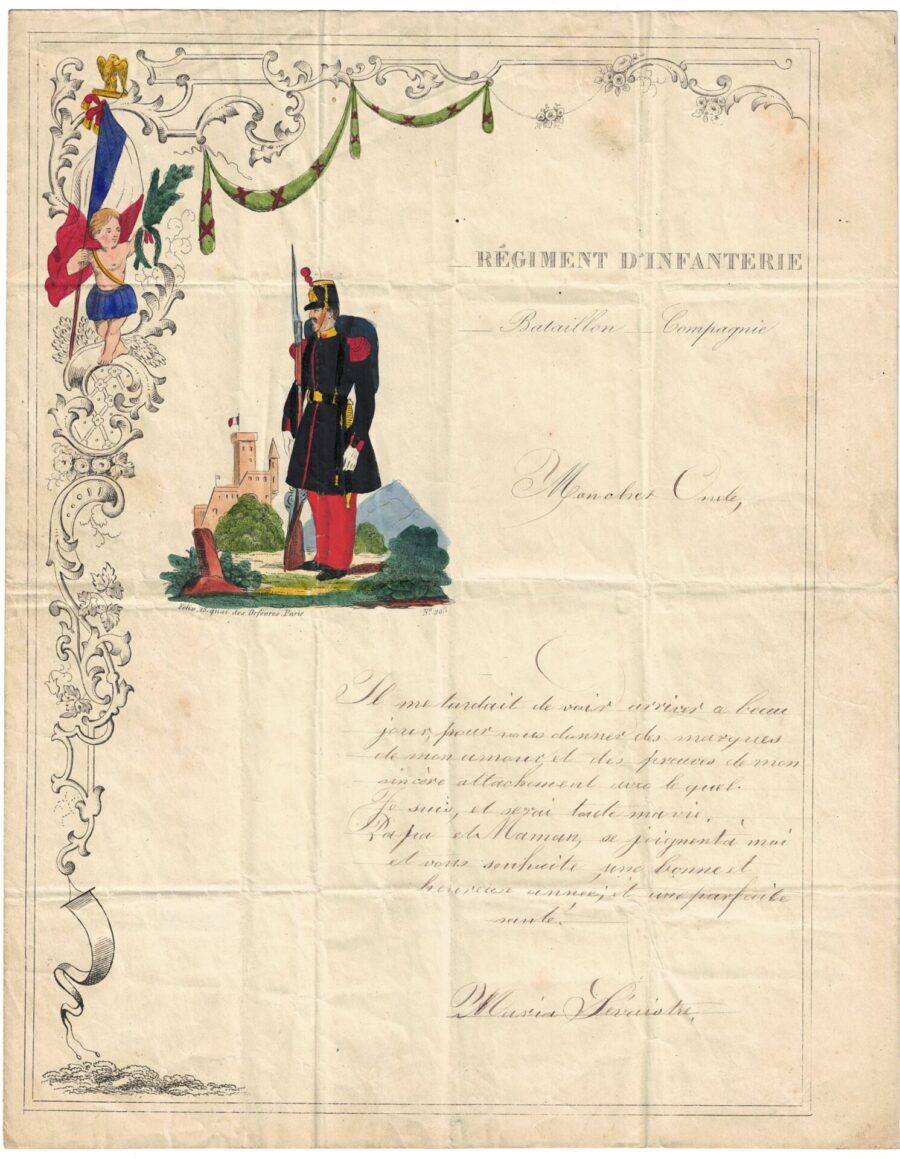 RÉGIMENT D'INFANTERIE
Bataillon Compagnie
Mon cher Oncle,
quai des Orfèvres, Paris
Il me tardait de voir arriver a beau
jour, pour vous donner des marques
de mon amour, et des preuves de mon
sincère attachement avec le quel.
Je suis, et serai toute ma vie.
Papa et Maman, se joignent à moi
et vous souhaite une bonne et
heureuse année, et une parfaite
santé.
Maria